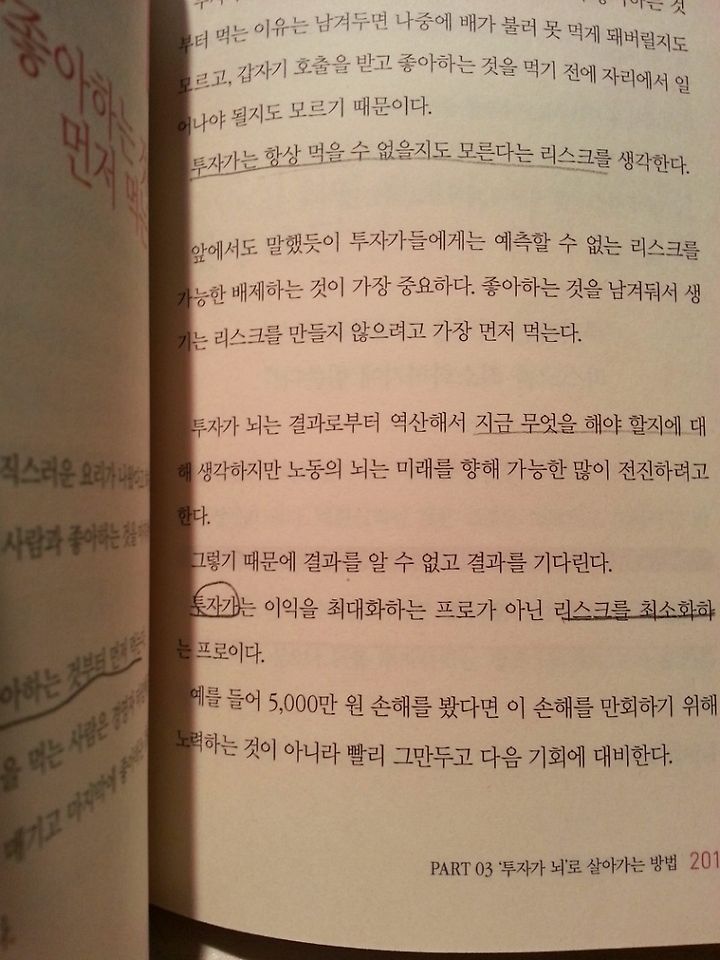 좋아하는
먼저 먹는
직스러운 요리가
사람과 좋아하는 것을
아하는 것부터 먼저 먹는
을 먹는 사람은
매기고 마지막에
부터 먹는 이유는 남겨두면 나중에 배가 불러 못 먹게 돼버릴지도
모르고, 갑자기 호출을 받고 좋아하는 것을 먹기 전에 자리에서 일
어나야 될지도 모르기 때문이다.
투자가는 항상 먹을 수 없을지도 모른다는 리스크를 생각한다.
앞에서도 말했듯이 투자가들에게는 예측할 수 없는 리스크를
가능한 배제하는 것이 가장 중요하다. 좋아하는 것을 남겨둬서 생
기는 리스크를 만들지 않으려고 가장 먼저 먹는다.
투자가 뇌는 결과로부터 역산해서 지금 무엇을 해야 할지에 대
해 생각하지만 노동의 뇌는 미래를 향해 가능한 많이 전진하려고
한다.
그렇기 때문에 결과를 알 수 없고 결과를 기다린다.
투자가는 이익을 최대화하는 프로가 아닌 리스크를 최소화하
는 프로이다.
예를 들어 5,000만 원 손해를 봤다면 이 손해를 만회하기 위해
노력하는 것이 아니라 빨리 그만두고 다음 기회에 대비한다.
PART 03 '투자가 뇌'로 살아가는 방법 201